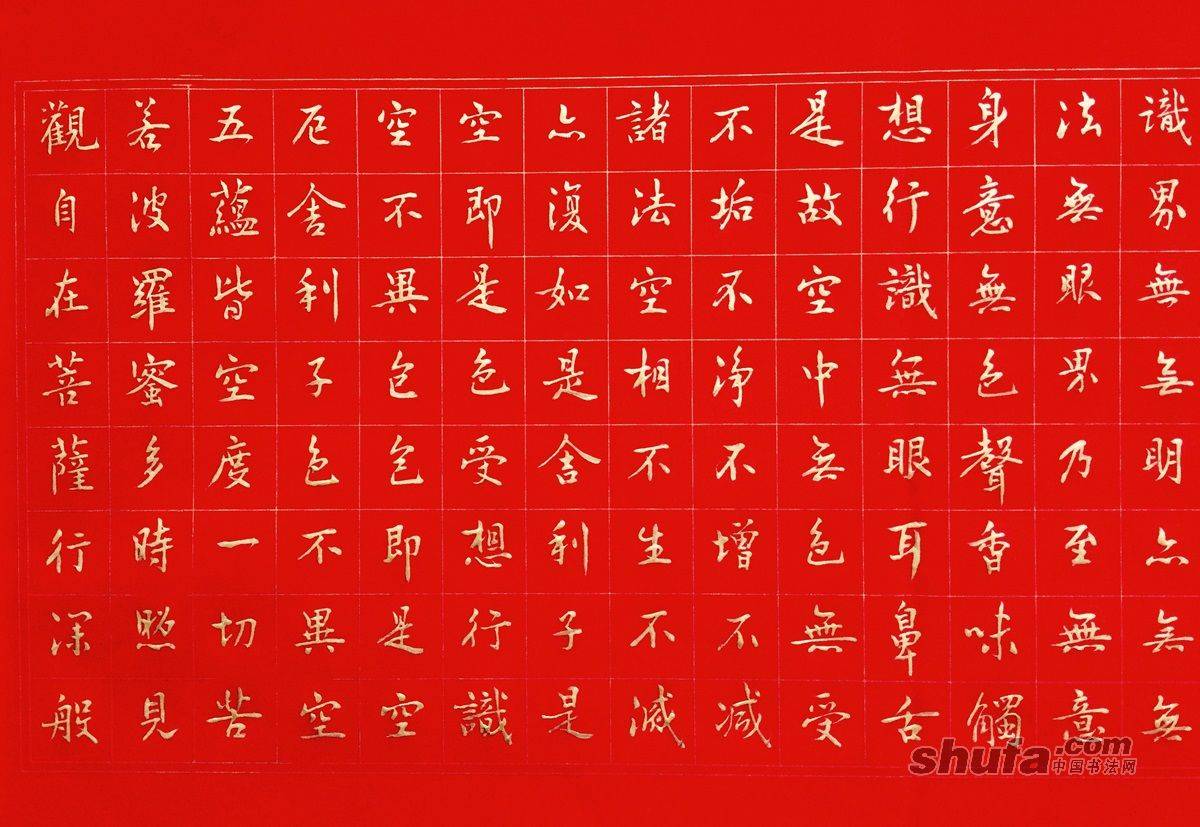 觀自在菩薩行深般
若波羅蜜多時照見
五蘊皆空度一切苦
厄舍利子色不異空
空不異色色即是空
空即是色受想行識
亦復如是舍利子是
諸法空相不生不滅
不垢不淨不增不減
是故空中無色無受
想行識無眼耳鼻舌
身意無色聲香味觸
法無眼界乃至無意
識界無無明亦無無
shufa.com
中国书法网